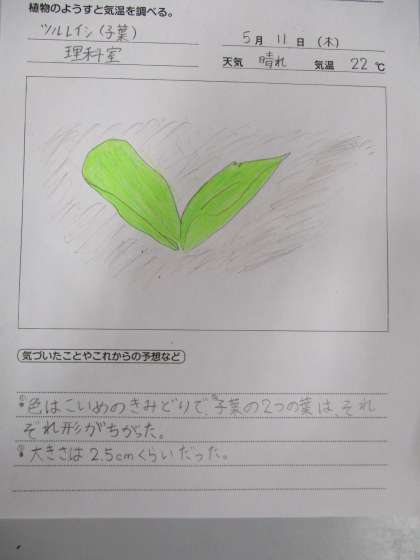 植物のようすと気温を調べる。
ツルレイシ(子葉)
5月 11日 (木)
理科室
天気 晴れ 気温 22℃
気づいたことやこれからの予想など
①色はこいめのきみどりで、子葉の2つの葉は、それ
ぞれ形がちがった。
②大きさは2.5cmくらいだった。